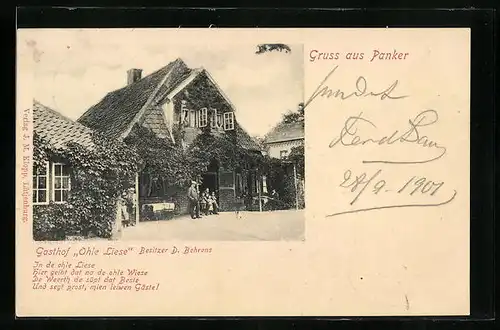 Gruss aus Panker
28/9. 1901
Verlag J. M. Klopp,
Gasthof „Ohle Liese“ Besitzer D. Behrens
In de ohle Liese
Hier geiht dat na de ohle Wiese
De Weerth de süpt dat Beste
Und segt prost, mien leiwen Gäste!